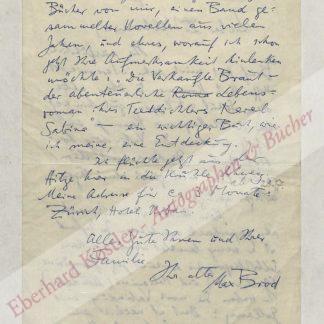 Bücher von mir, einen Band ge-
sammelter Novellen aus vielen
Jahren, und eines, worauf ich schon
jetzt Ihre Aufmerksamkeit hinlenken
möchte: „Die verkaufte Braut –
der abenteuerliche Lebens-
roman des Textdichters Karel
Sabina" – ein wichtiges Buch, wie
ich meine, eine Entdeckung.
Ich flüchte jetzt aus
Hitze hier in die Kühle
Meine Adresse für ca Monate:
Zürich, Hotel
Alles Gute Ihnen und Ihrer
Familie
Ihr alter
Max Brod
Eberhard Köstler Autographen & Bücher